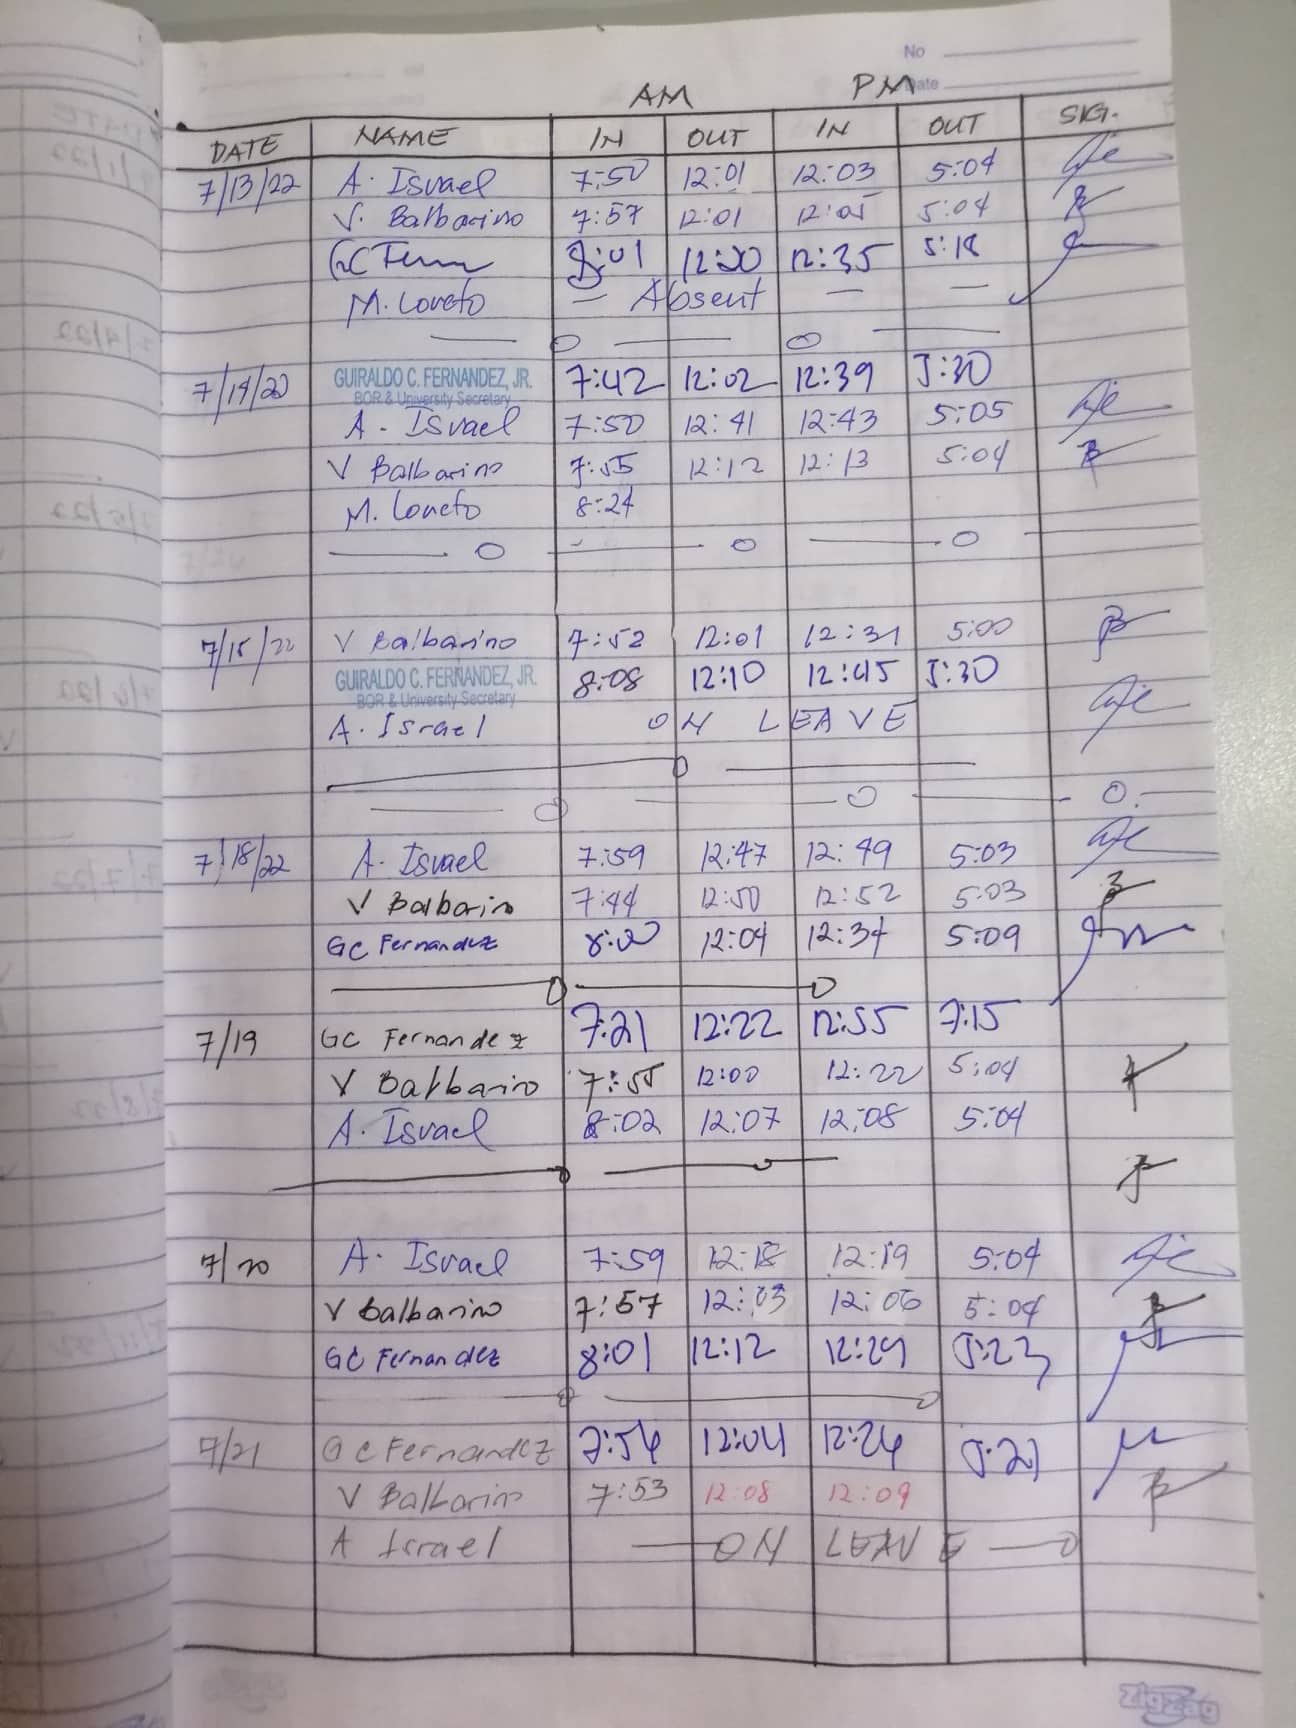 No
Date
AM PM
DATE NAME IN OUT IN OUT SIG.
7/13/22 A. Israel 7:50 12:01 12:03 5:04
V. Balbarino 7:57 12:01 12:05 5:04
GC 8:01 12:20 12:35 5:18
M. Loreto — Absent — —
7/14/20 GUIRALDO C. FERNANDEZ, JR. 7:42 12:02 12:39 5:30
BOR & University Secretary
A. Israel 7:50 12:41 12:43 5:05
V Balbarino 7:55 12:12 12:13 5:04
M. Loreto 8:24
7/15/22 V Balbarino 7:52 12:01 12:31 5:00
GUIRALDO C. FERNANDEZ, JR. 8:08 12:10 12:45 5:30
BOR & University Secretary
A. Israel ON LEAVE
7/18/22 A. Israel 7:59 12:47 12:49 5:03
V Balbarin 7:44 12:50 12:52 5:03
GC Fernandez 8:00 12:04 12:34 5:09
7/19 GC Fernandez 7:21 12:22 12:55 7:15
V Balbarino 7:55 12:00 12:22 5:04
A. Israel 8:02 12:07 12:08 5:04
7/20 A. Israel 7:59 12:18 12:19 5:04
V Balbarino 7:57 12:03 12:06 5:04
GC Fernandez 8:01 12:12 12:29 5:23
7/21 GC Fernandez 7:54 12:04 12:24 5:21
V Balbarino 7:53 12:08 12:09
A Israel ON LEAVE
ZigZag